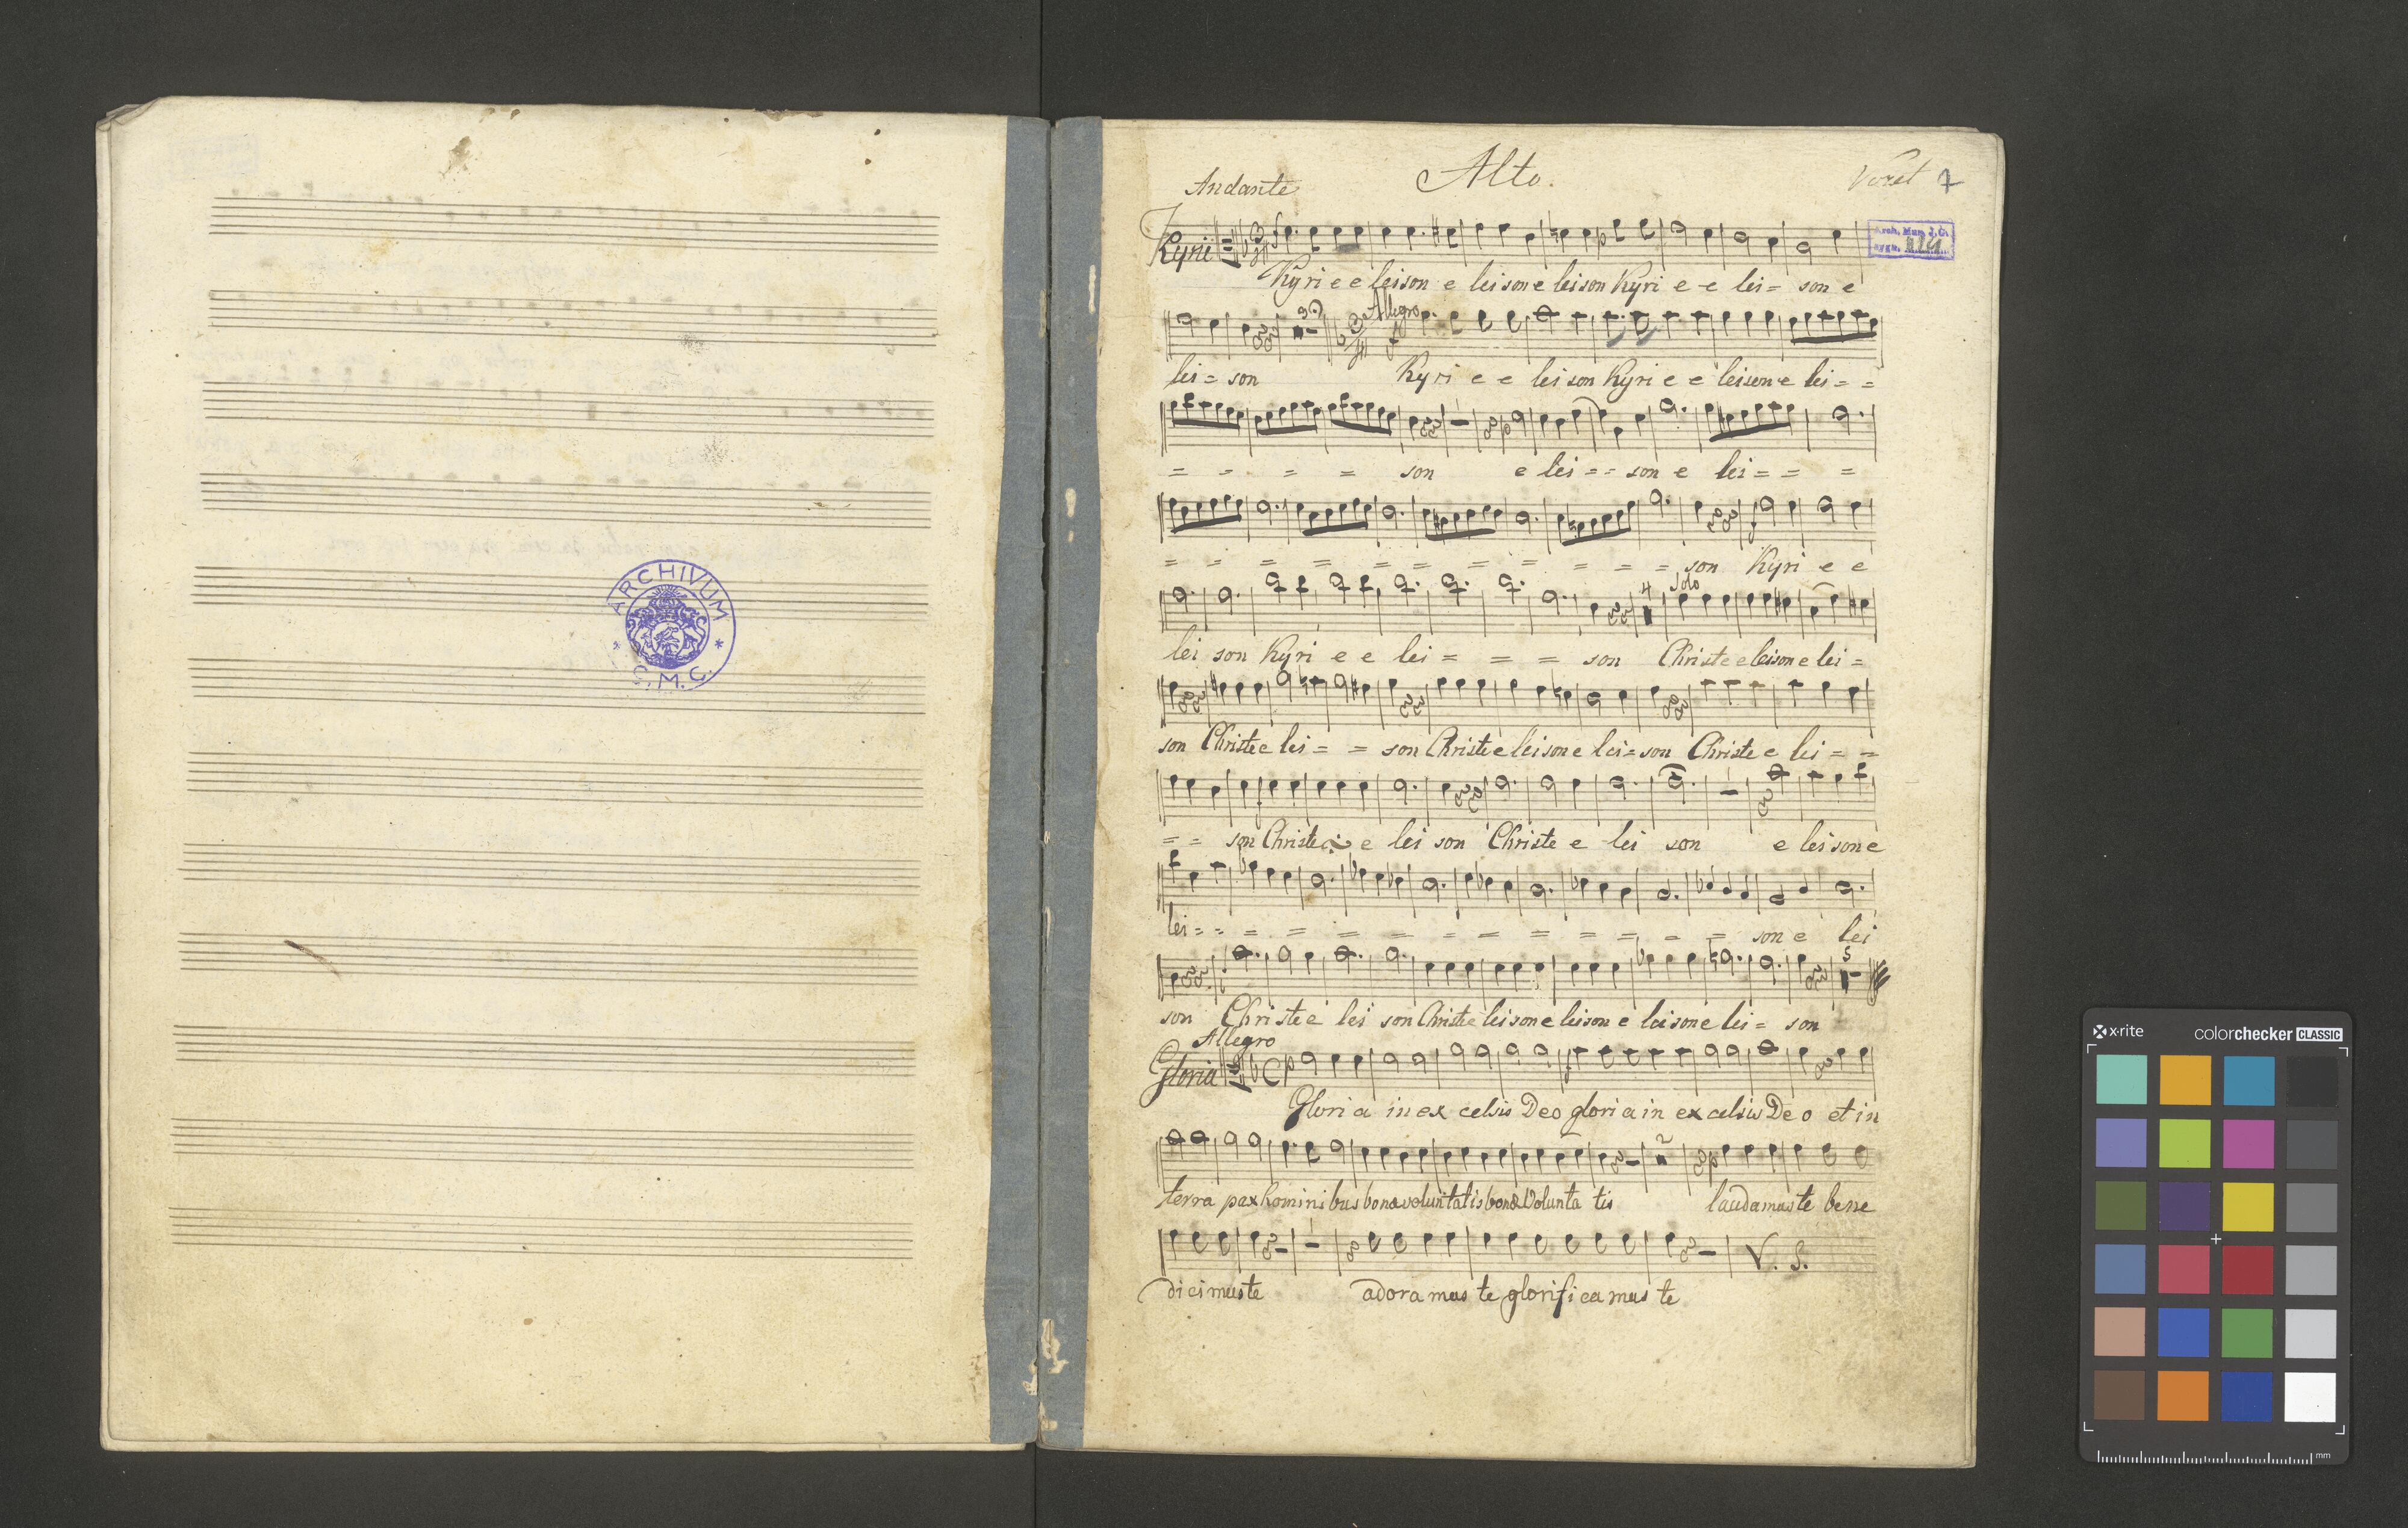 ARCHIVUM
S. M. C.
Alto.
7
Andante
Kyrie
Arch. Mus. J. G.
sygn.
Kyri e e leison e leison e leison Kyri e e lei= son e
Allegro
lei= son Kyri e e lei son Kyri e e leison e lei= =
= = = = son e lei = = son e lei = = =
= = = = = = = = = = son Kyri e e
4
Solo
lei son Kyri e e lei = = = son Christe eleison e lei =
son Christe e lei = = son Christe eleison e lei= son Christe e lei = =
= = son Christe e lei son Christe e lei son e leison e
lei = = = = = = = = = = = = son e lei
5
son Christe e lei son Christe eleison e leison e leison e lei= son
Allegro
Gloria
Glori a in ex celsis Deo glori a in ex celsis De o et in
2
terra pax homini bus bonæ voluntatis bonæ Volunta tis laudamus te bene
V. S.
dicimus te adora mus te glorifi camus te
x-rite
colorchecker CLASSIC
mm